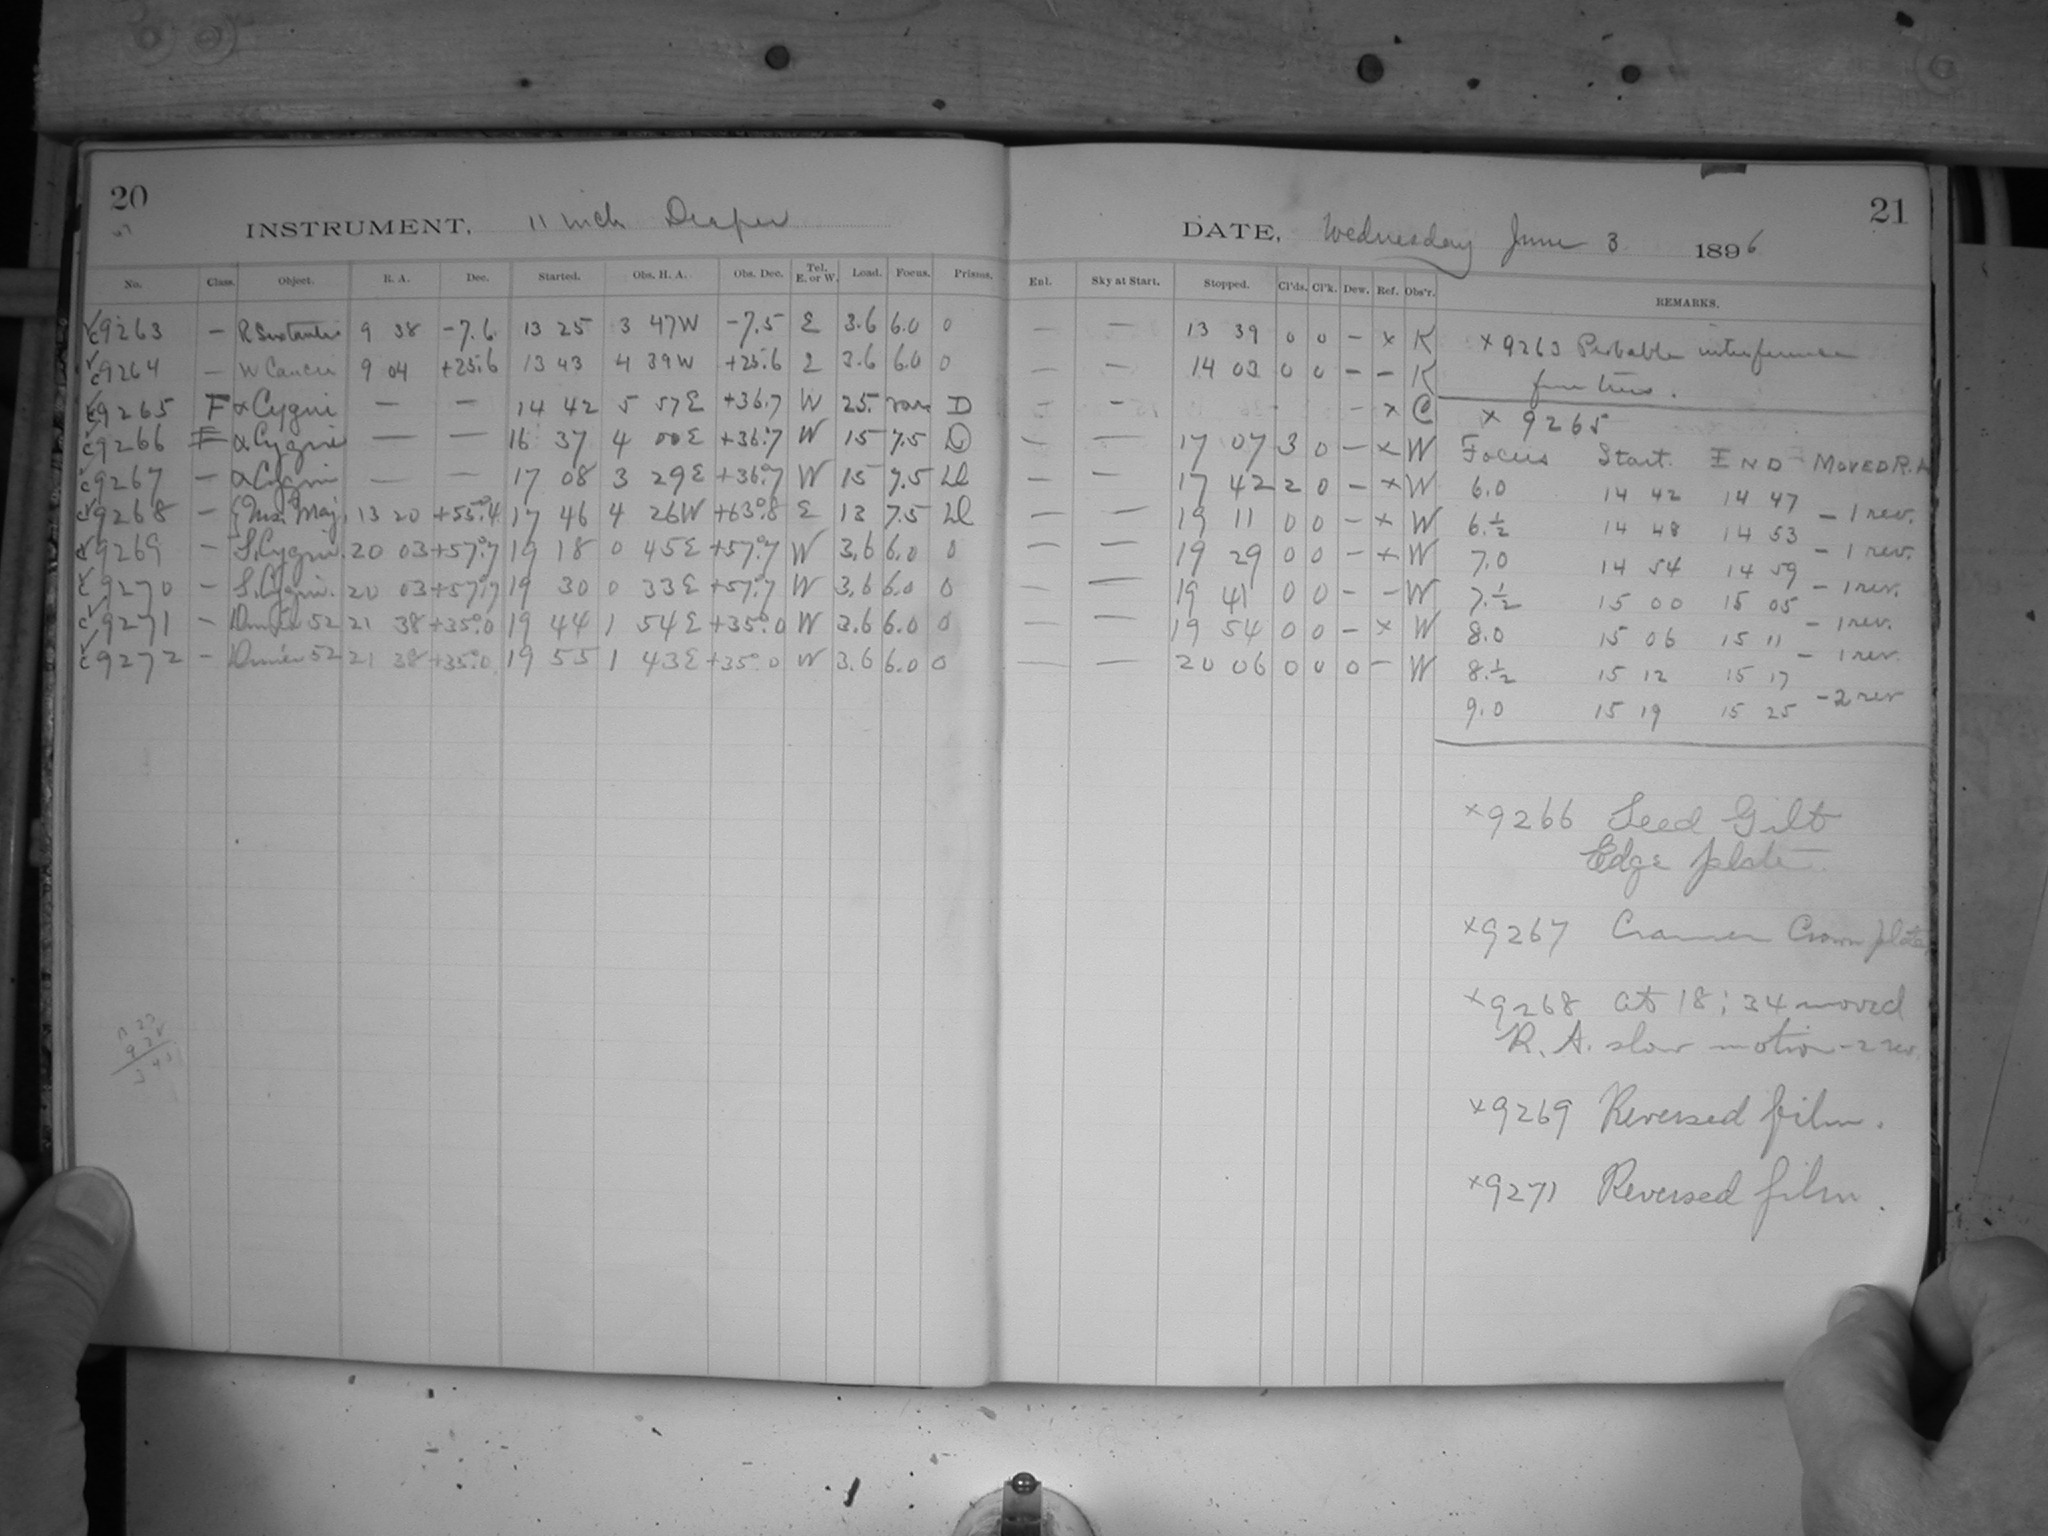 20
INSTRUMENT, 11 inch Draper
No. Class. Object. R. A. Dec. Started. Obs. H. A. Obs. Dec. Tel. E. or W. Load. Focus. Prisms.
c9263 — R Sextantis 9 38 -7.6 13 25 3 47W -7.5 E 3.6 6.0 0
c9264 — W Cancri 9 04 +25.6 13 43 4 39W +25.6 E 3.6 6.0 0
c9265 F α Cygni — — 14 42 5 57E +36.7 W 25. var. D
c9266 F α Cygni — — 16 37 4 00E +36.7 W 15 7.5 D
c9267 — α Cygni — — 17 08 3 29E +36.7 W 15 7.5 D
c9268 — ζ Urs. Maj. 13 20 +55.4 17 46 4 26W +63.8 E 13 7.5 D
c9269 — S. Cygni. 20 03 +57.7 19 18 0 45E +57.7 W 3.6 6.0 0
c9270 — S. Cygni. 20 03 +57.7 19 30 0 33E +57.7 W 3.6 6.0 0
c9271 — Dunér 52 21 38 +35.0 19 44 1 54E +35.0 W 3.6 6.0 0
c9272 — Dunér 52 21 38 +35.0 19 55 1 43E +35.0 W 3.6 6.0 0
21
DATE, Wednesday June 3 1896
Enl. Sky at Start. Stopped. Cl'ds. Cl'k. Dew. Ref. Obs'r. REMARKS.
— — 13 39 0 0 – × K
— — 14 03 0 0 – – K
– – – × C
— — 17 07 3 0 – × W
— — 17 42 2 0 – × W
— — 19 11 0 0 – × W
— — 19 29 0 0 – × W
— — 19 41 0 0 – – W
— — 19 54 0 0 – × W
— — 20 06 0 0 0 – W
×9263 Probable interference
from trees.
× 9265
Focus Start. END MOVED R.A
6.0 14 42 14 47
– 1 rev.
6.½ 14 48 14 53
– 1 rev.
7.0 14 54 14 59
– 1 rev.
7.½ 15 00 15 05
– 1 rev.
8.0 15 06 15 11
– 1 rev.
8.½ 15 12 15 17
– 2 rev
9.0 15 19 15 25
×9266 Seed Gilt
Edge plate.
×9267 Cramer Crown plate
×9268 at 18:34 moved
R. A. slow motion – 2 rev.
×9269 Reversed film.
×9271 Reversed film.